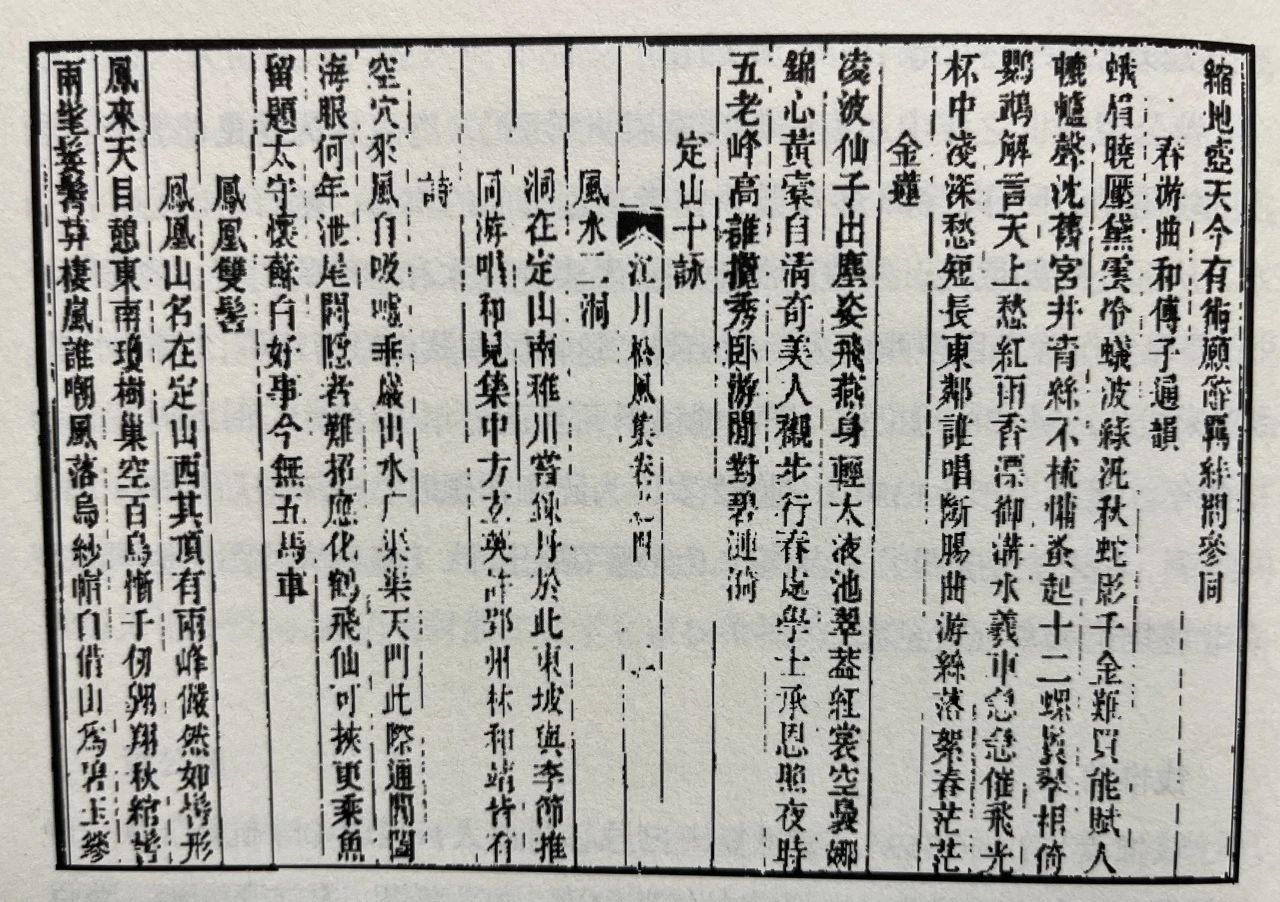 縮地壺天今有術願僻羈絲問參同
春游曲和傅子通韻
蛾眉曉壓黛雲冷蟻波綠汎秋蛇影千金難買能賦人
轆轤聲沈舊宮井青絲不梳慵蚤起十二螺鬟翠相倚
鸚鵡解言天上愁紅雨香漂御溝水羲車急急催飛光
杯中淺深愁短長東鄰誰唱斷腸曲游絲落絮春茫茫
金蓮
凌波仙子出塵姿飛燕身輕太液池翠蓋紅裳空裊娜
錦心黃橐自清奇美人襯步行春處學士承恩照夜時
五老峰高誰攬秀卧游閒對碧漣漪
定山十詠
江月松風集卷之四
風水二洞
洞在定山南稚川嘗鍊丹於此東坡與李節推
同游唱和見集中方玄英許鄂州林和靖皆有
詩
空穴來風自吸噓垂巖出水广渠渠天門此際通閶闔
海眼何年泄尾閭隱者難招應化鶴飛仙可挾更乘魚
留題太守懷蘇白好事今無五馬車
鳳凰雙髻
鳳凰山名在定山西其頂有兩峰儼然如髻形
鳳來天目憩東南瓊樹巢空百鳥慚千仞翱翔秋綰髻
兩髦髣髴弄棲嵐誰嘲風落烏紗帽自借山為碧玉簪